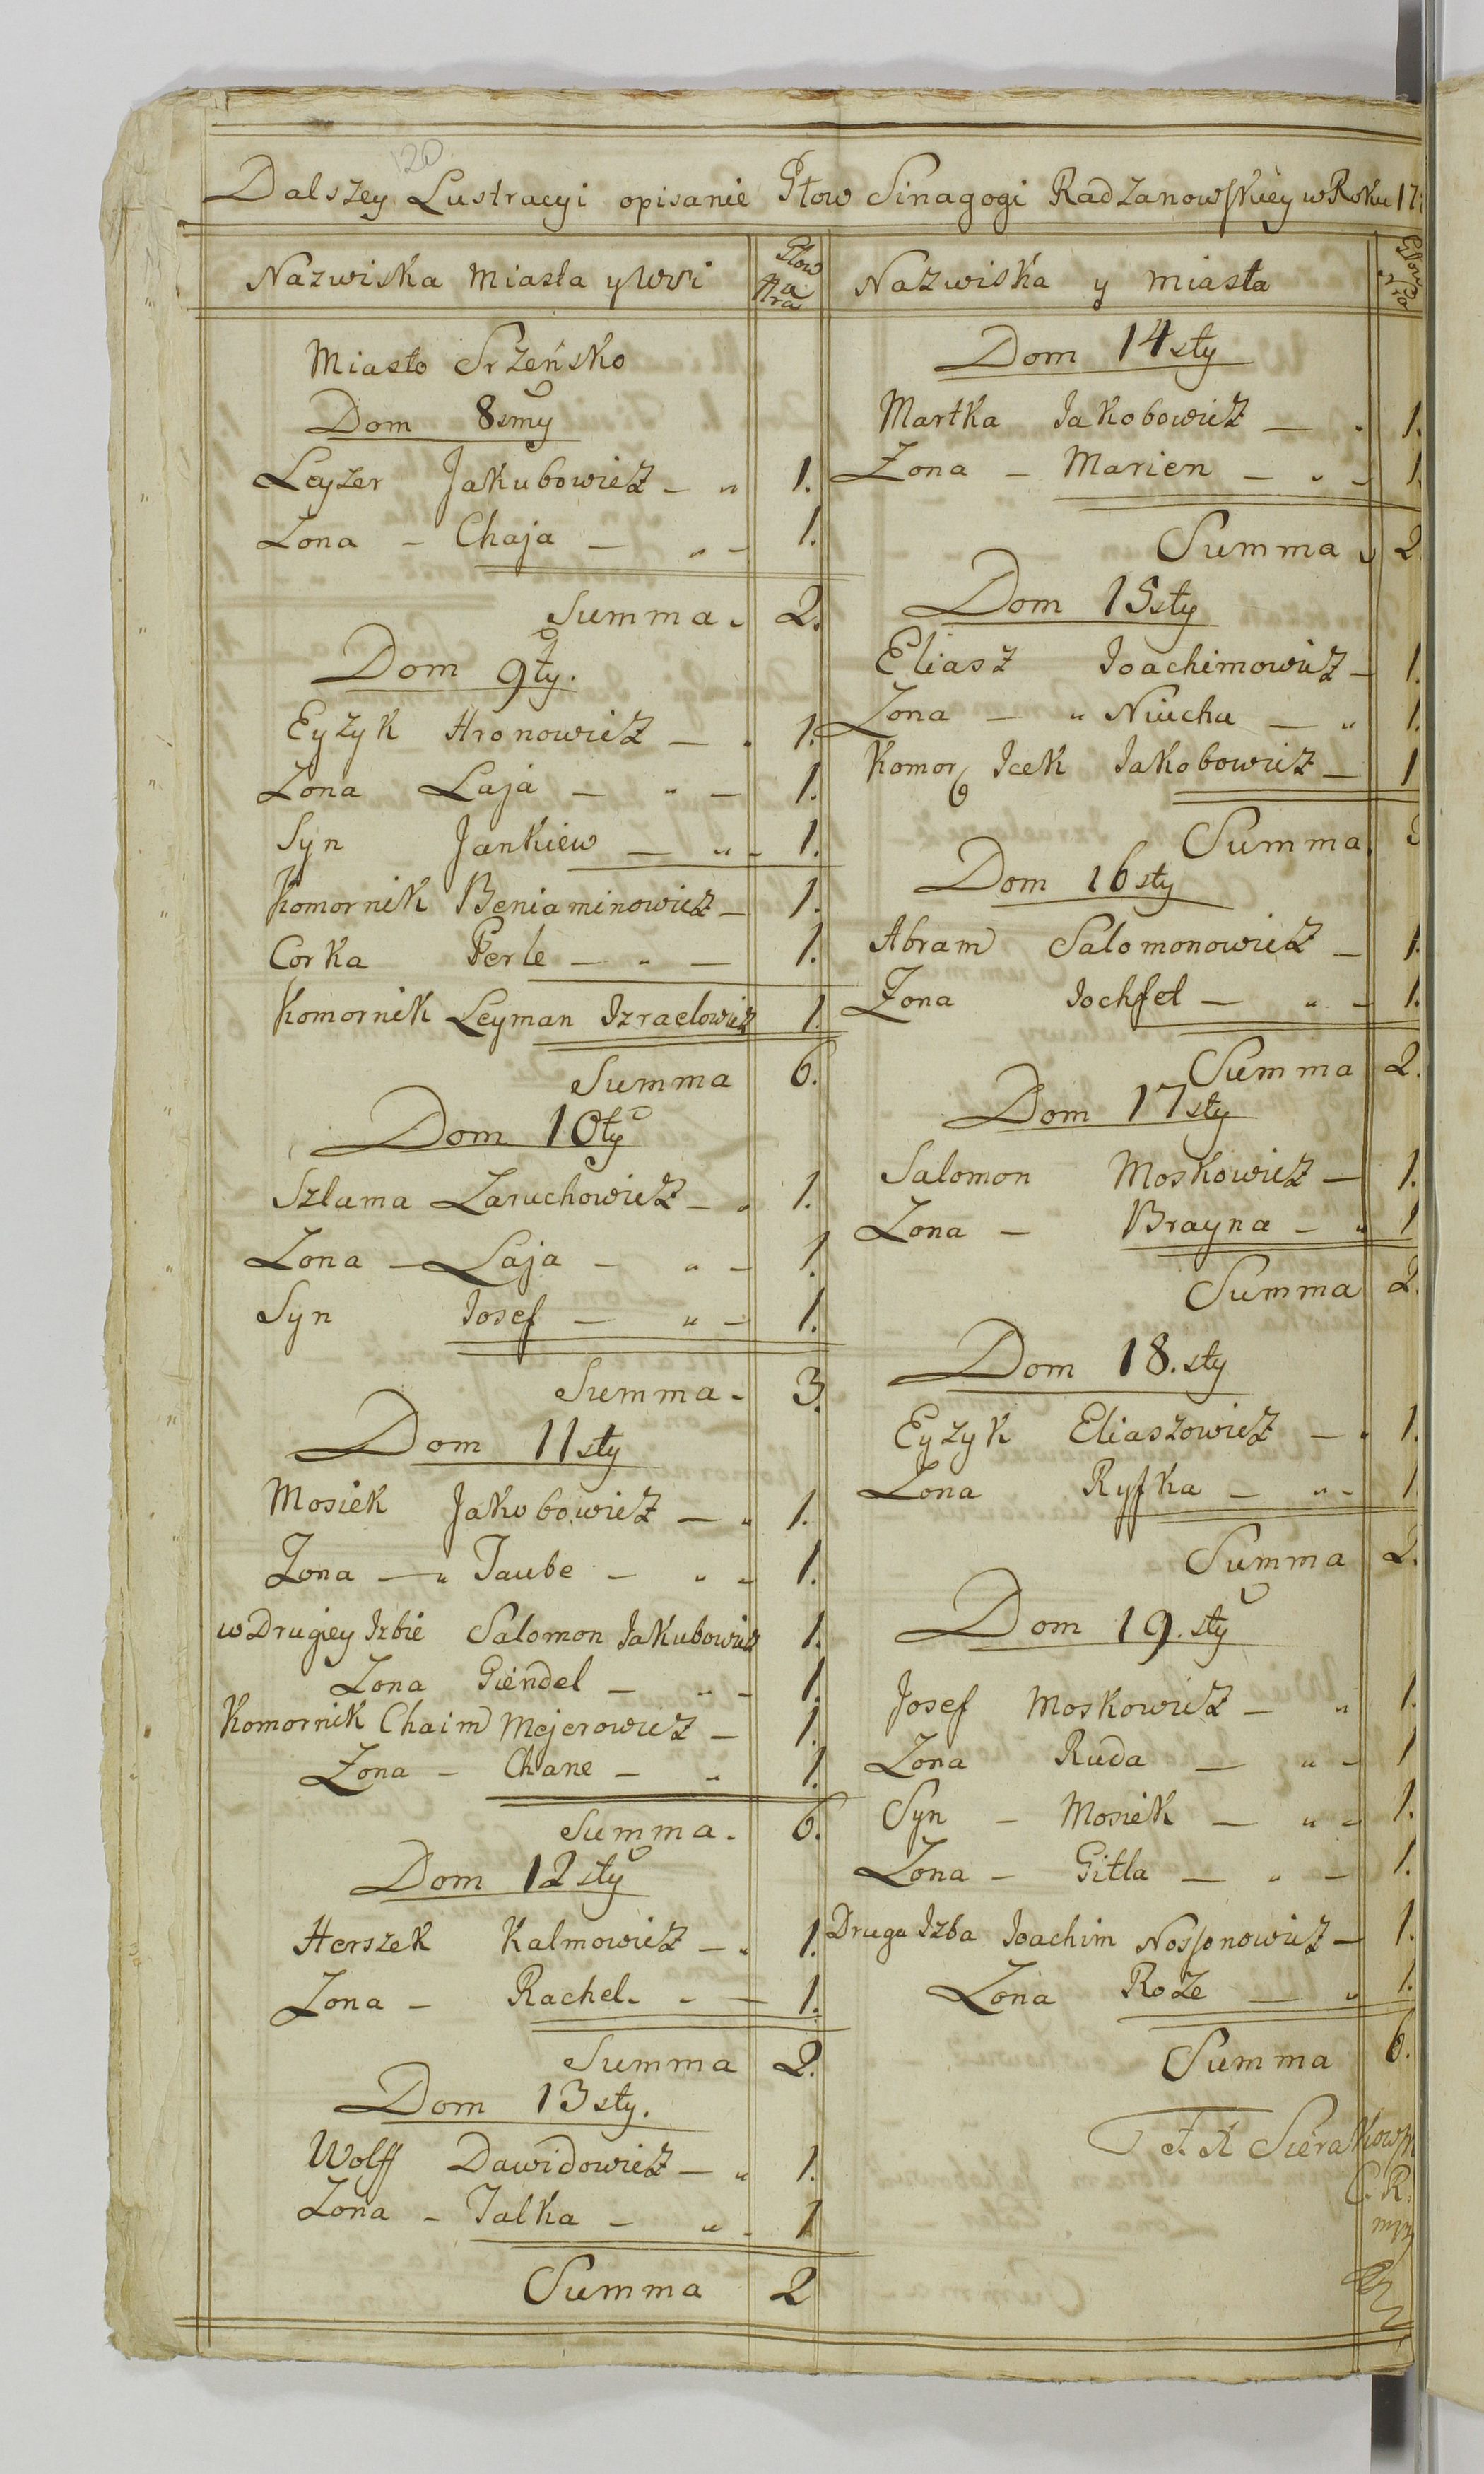 120
Dalszey Lustracyi opisanie Głow Sinagogi Radzanowskiey w Roku 17
Nazwiska Miasta y Wsi
Głow
Miasto Srzeńsko
Dom 8smy
Leyzer Jakubowicz — „ 1.
Zona — Chaja — „ — 1.
Summa. 2.
Dom 9ty.
Eyzyk Hronowicz — . 1.
Zona Laja — „ — 1.
Syn Jankiew — „ — 1.
Komornik Beniaminowicz — 1.
Corka Perle — „ — 1.
Komornik Leyman Izraelowicz 1.
Summa 6.
Dom 10ty
Szlama Zaruchowicz — „ 1.
Zona — Laja — „ — 1.
Syn Iosef — „ — 1.
Summa. 3.
Dom 11sty
Mosiek Jakobowicz — „ 1.
Zona — „ Taube — „ — 1.
w Drugiey Izbie Salomon Iakubowicz 1.
Zona Giendel — „ — 1.
Komornik Chaim Mejerowicz — 1.
Zona — Chane — „ 1.
Summa. 6.
Dom 12sty
Herszek Kalmowicz — „ 1.
Zona — Rachel. „ — 1.
Summa 2.
Dom 13sty.
Wolff Dawidowicz — „ 1.
Zona — Talka — „ — 1
Summa 2
Nazwiska y miasta
Dom 14sty
Martka Iakobowicz — . 1.
Zona — Marien — „ — 1.
Summa „ 2
Dom 15sty
Eliasz Ioachimowicz — 1.
Zona — „ Niucha — „ 1.
Komor Icek Iakobowicz — 1
Summa. 3
Dom 16sty
Abram Salomonowicz — 1.
Zona Iochfet — „ — 1.
Summa 2.
Dom 17sty
Salomon Moskowicz — 1.
Zona — Brayna — „ 1
Summa 2.
Dom 18.sty
Eyzyk Eliaszowicz — . 1.
Zona Ryfka — „ — 1
Summa 2.
Dom 19.sty
Josef Moskowicz — „ 1.
Zona Ruda — „ — 1
Syn — Mosiek — „ — 1.
Zona — Gitla — „ — 1.
Druga Izba Ioachim Nosjonowicz — 1.
Zona Roze — „ 1.
Summa 6.
Sierakows
C. R.
mp